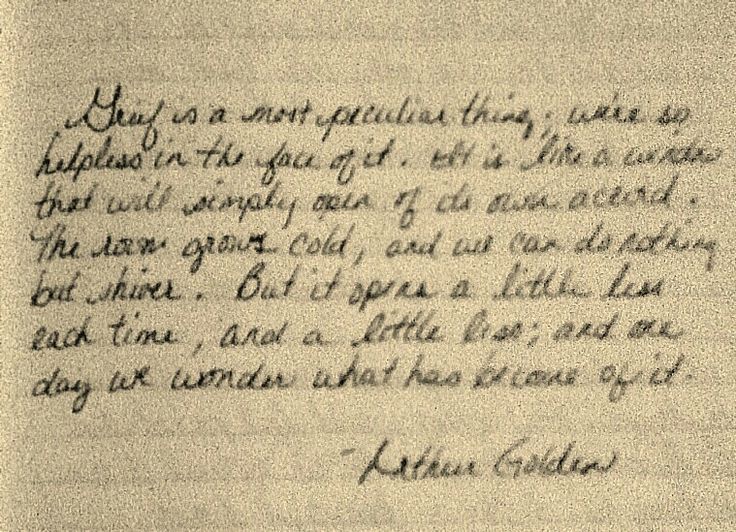 Grief is a most peculiar thing; we're so
helpless in the face of it. It is like a window
that will simply open of its own accord.
The room grows cold, and we can do nothing
but shiver. But it opens a little less
each time, and a little less; and one
day we wonder what has become of it.
- Arthur Golden